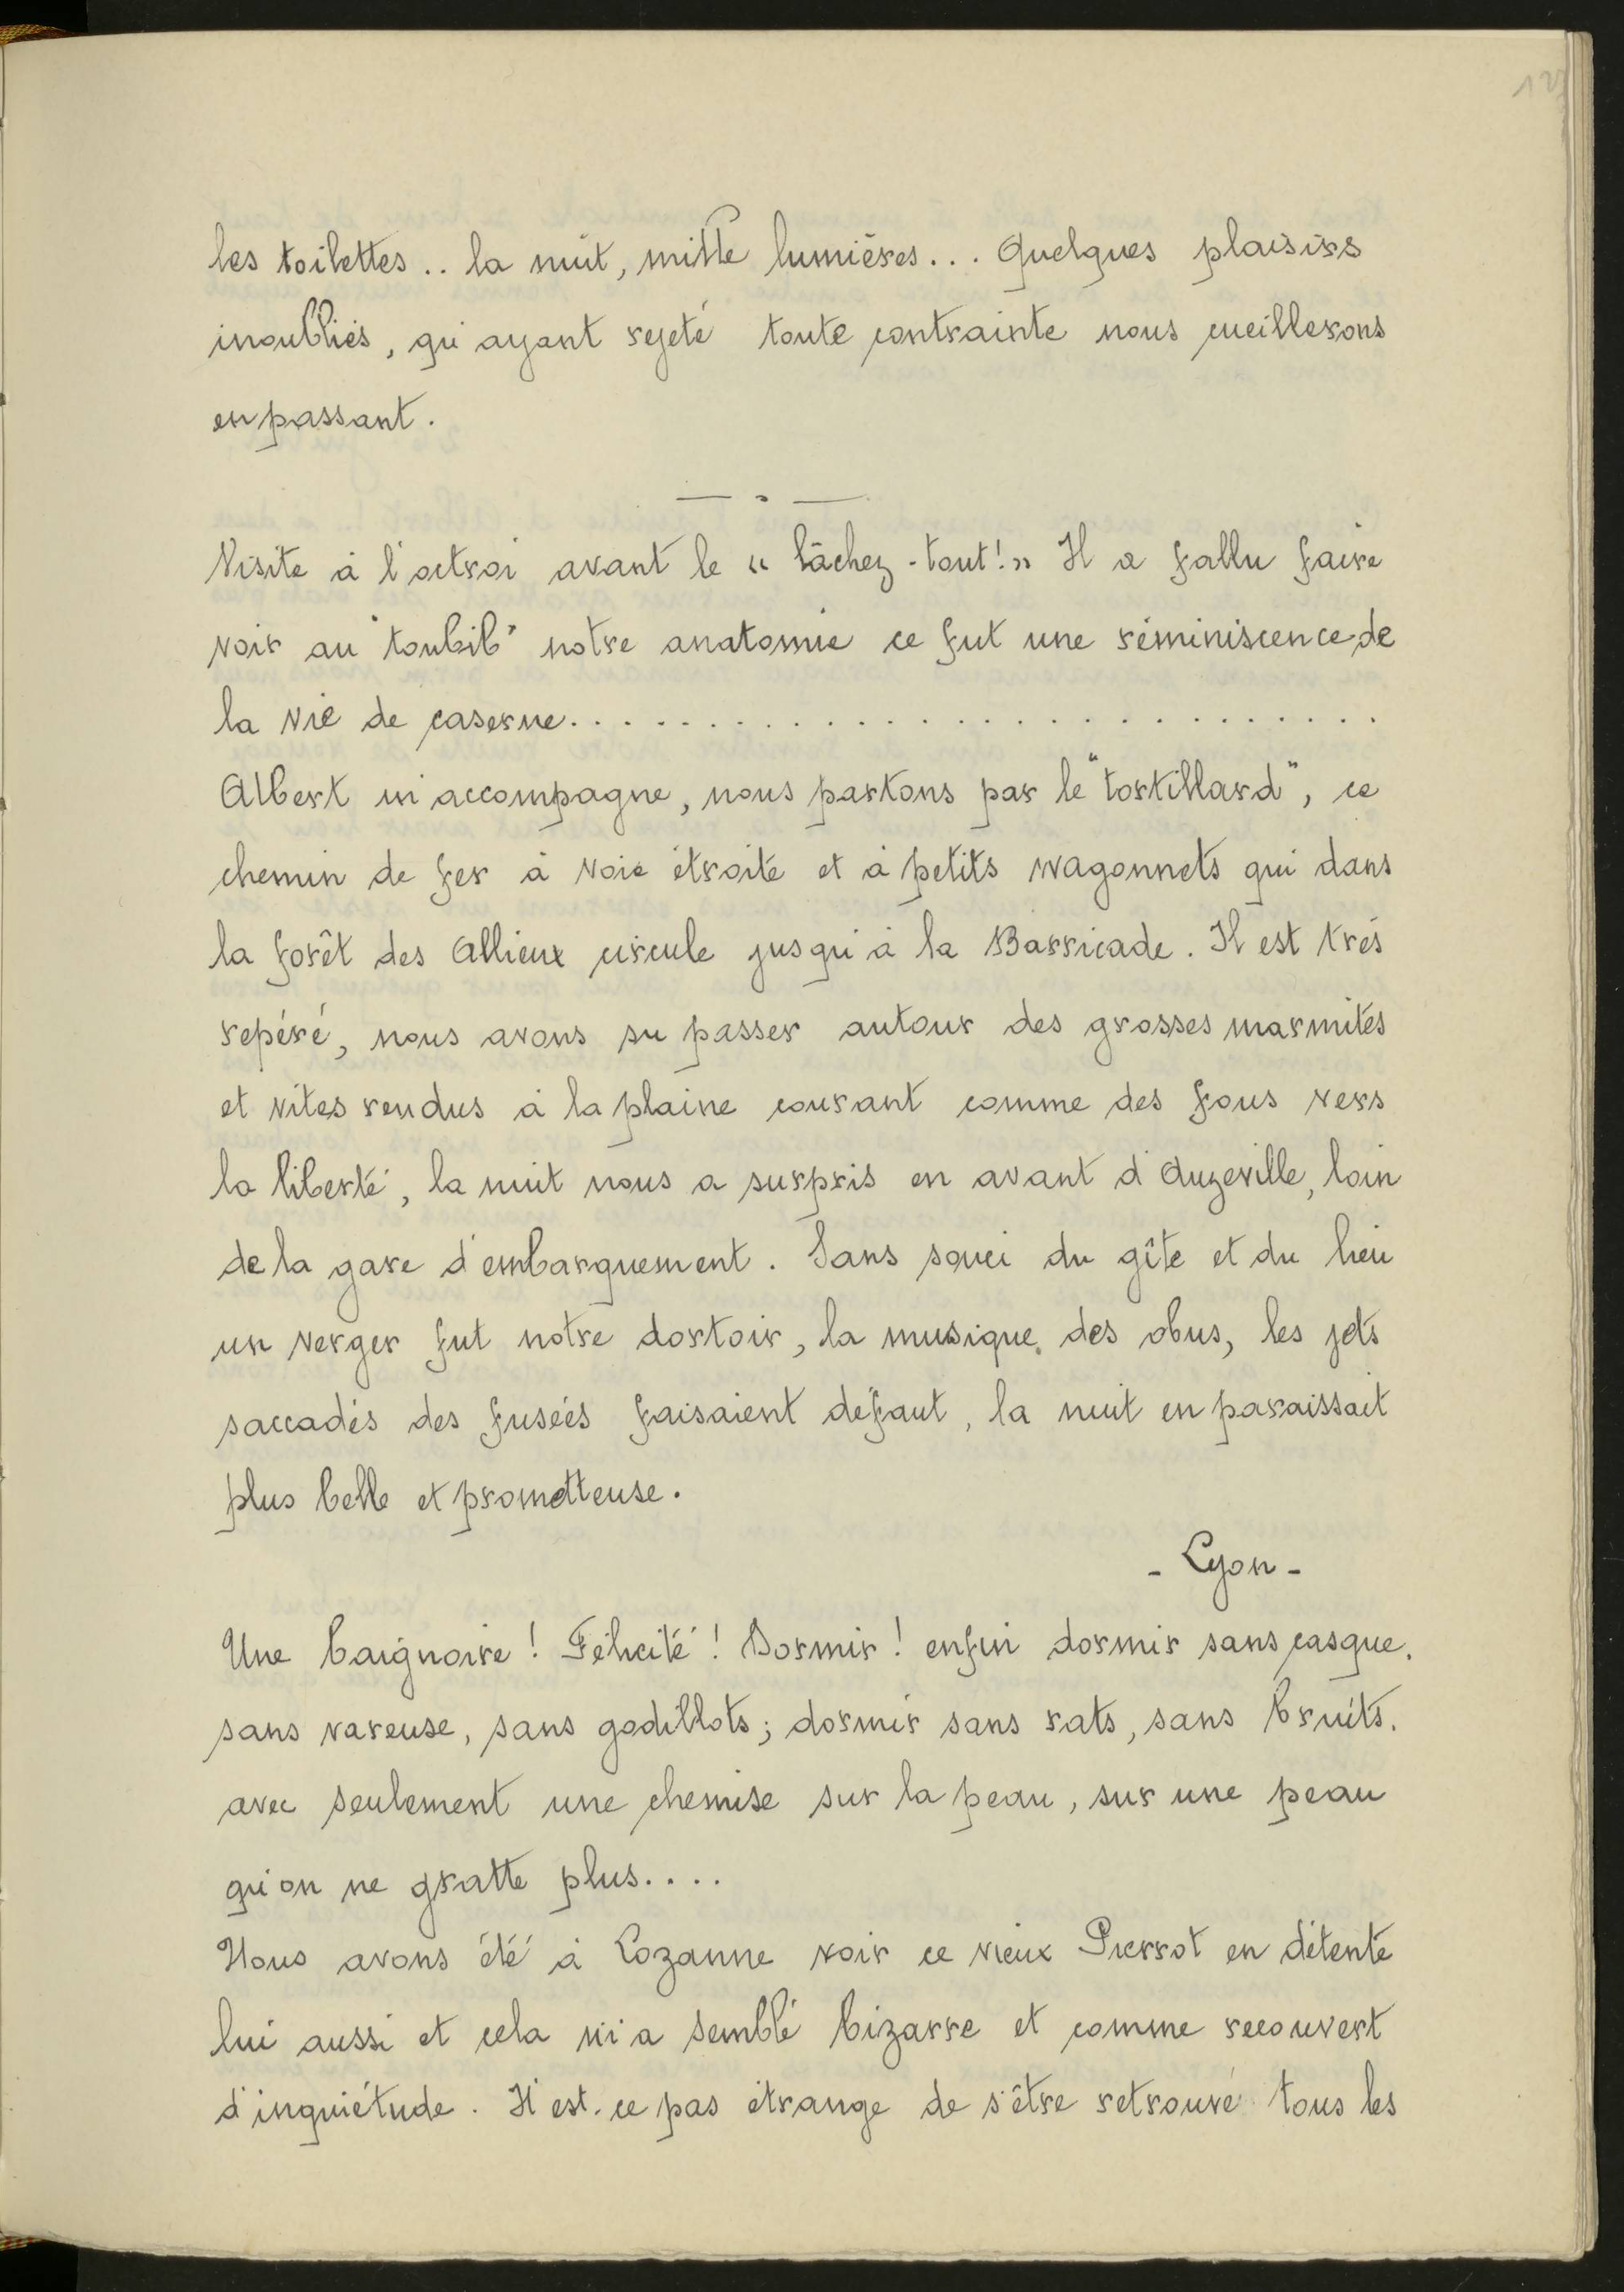 les toilettes.. la nuit, mille lumières... Quelques plaisirs
inoubliés, qu'ayant rejeté toute contrainte nous cueillerons
en passant.
Visite à l'octroi avant le « lâchez-tout! » Il a fallu faire
voir au "toubib" notre anatomie ce fut une réminiscence de
la vie de caserne..............................
Albert m'accompagne, nous partons par le "tortillard", ce
chemin de fer à voie étroite et à petits wagonnets qui dans
la forêt des Allieux circule jusqu'à la Barricade. Il est très
repéré, nous avons su passer autour des grosses marmites
et vites rendus à la plaine courant comme des fous vers
la liberté, la nuit nous a surpris en avant d'Auzeville, loin
de la gare d'embarquement. Sans souci du gîte et du lieu
un verger fut notre dortoir, la musique des obus, les jets
saccadés des fusées faisaient défaut, la nuit en paraissait
plus belle et prometteuse.
- Lyon -
Une baignoire! Félicité! Dormir! enfin dormir sans casque,
sans vareuse, sans godillots; dormir sans rats, sans bruits.
avec seulement une chemise sur la peau, sur une peau
qu'on ne gratte plus....
Nous avons été à Lozanne voir ce vieux Pierrot en détente
lui aussi et cela m'a semblé bizarre et comme recouvert
d'inquiétude. N'est-ce pas étrange de s'être retrouvé tous les